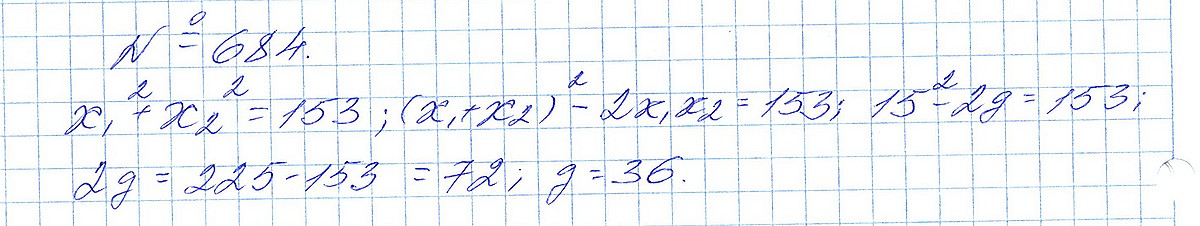 № 684.
x₁² + x₂² = 153; (x₁ + x₂)² - 2x₁x₂ = 153; 15² - 2g = 153;
2g = 225 - 153 = 72; g = 36.